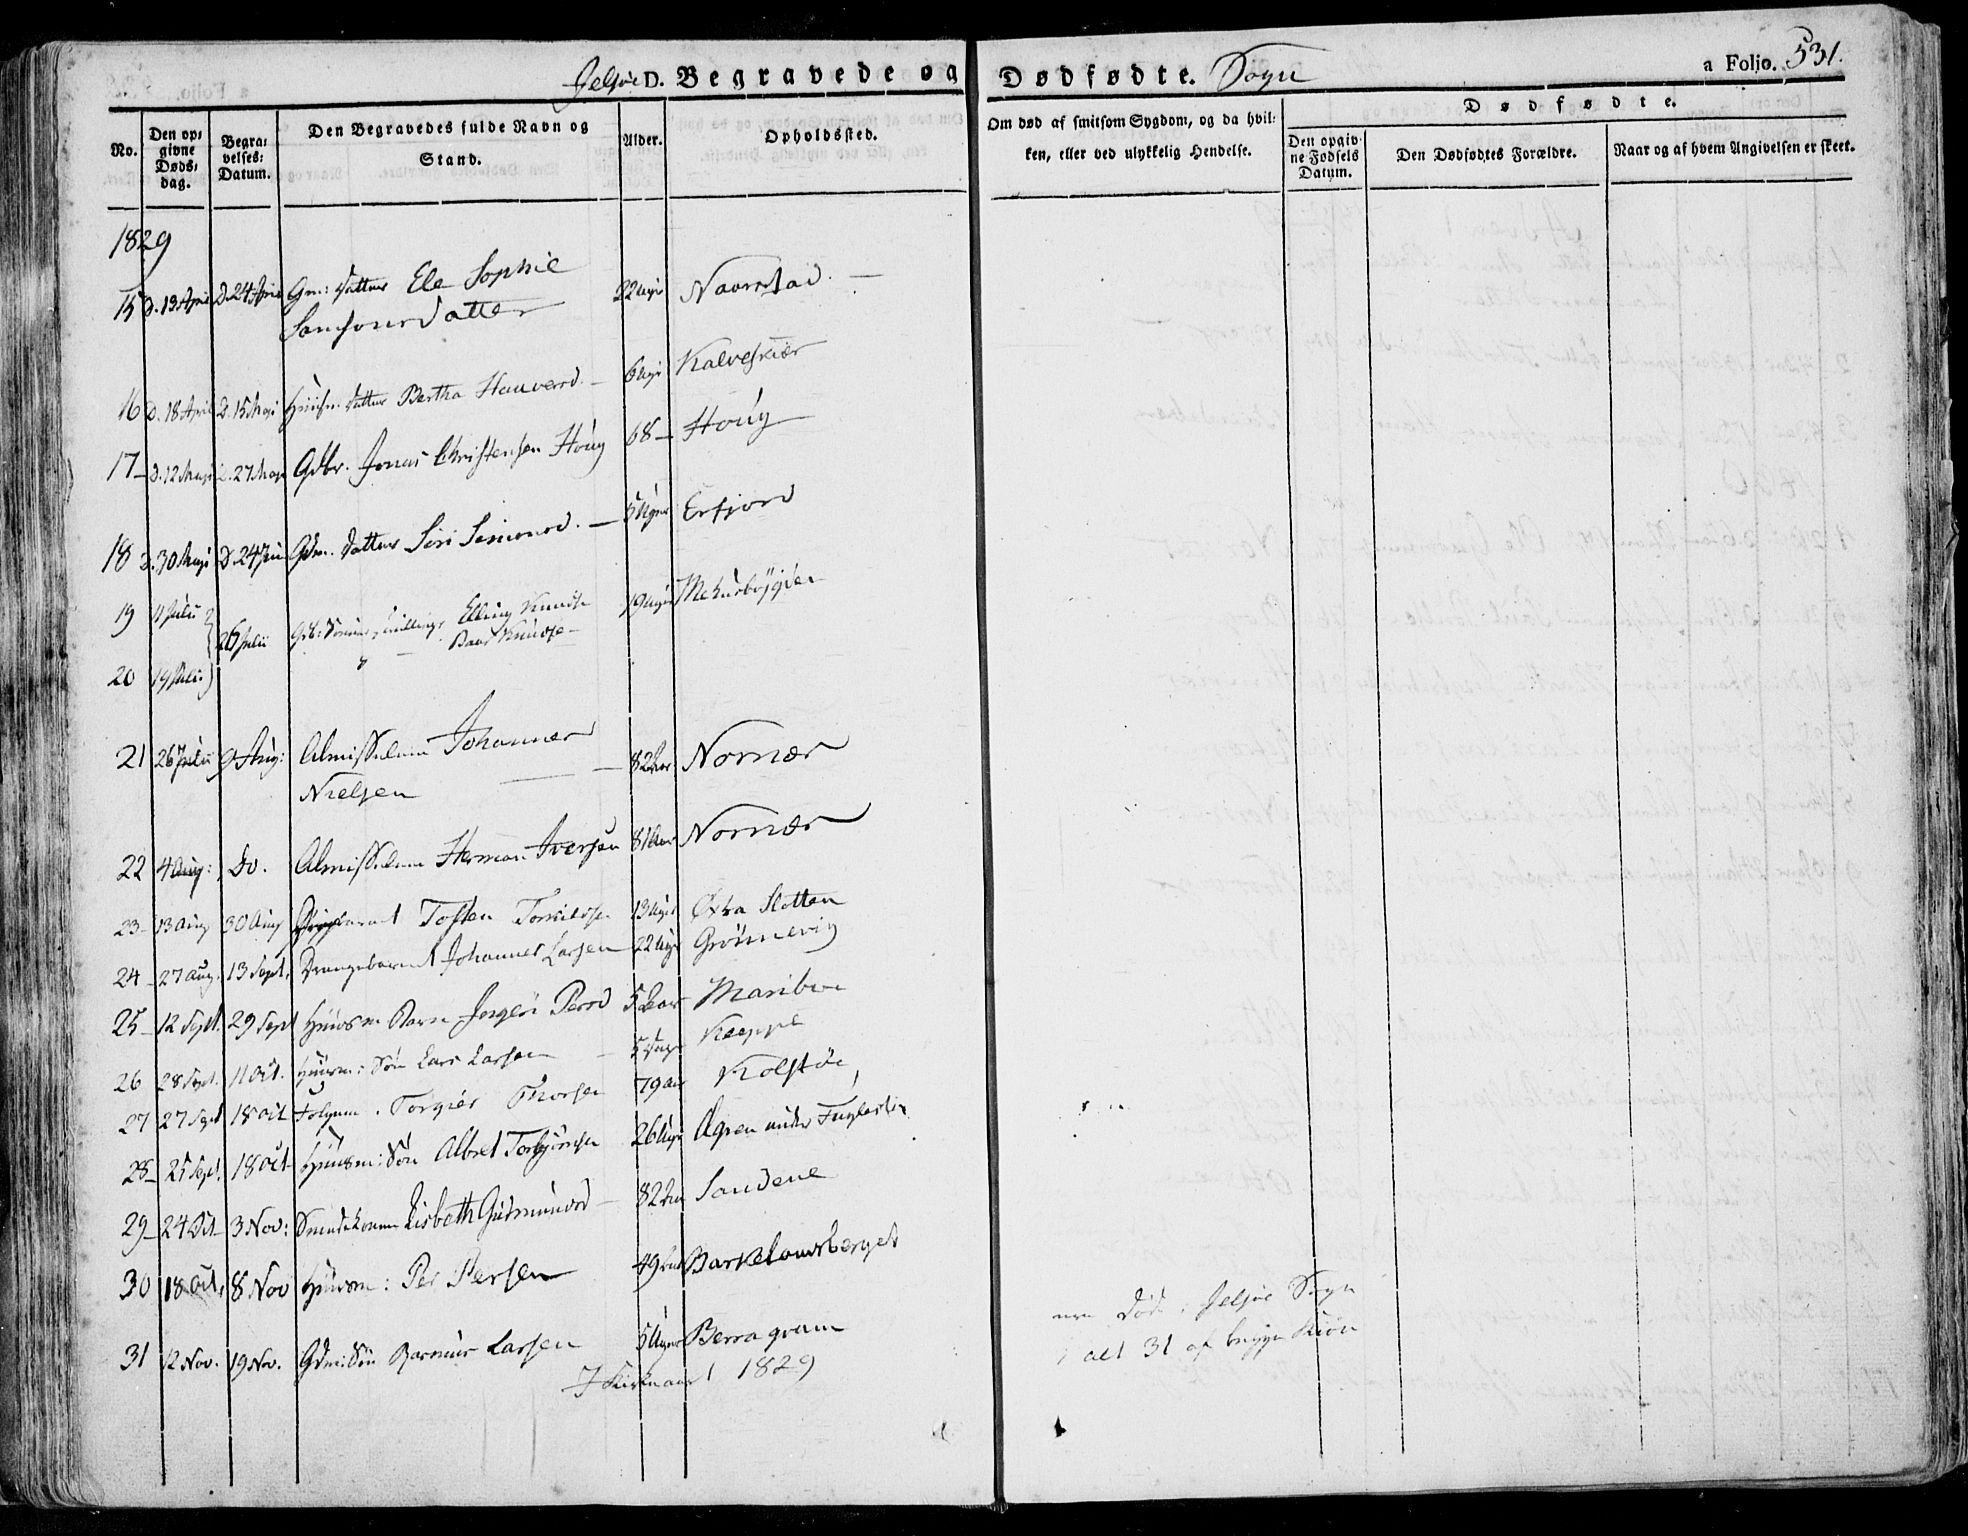 Jelsøe D. Begravede og Dødfødte. Sogn a Folio. 531.
No. Den op- givne Døds- dag. Begra- velses- Datum. Den Begravedes fulde Navn og Stand. Alder. Opholdssted. Om død af smitsom Sygdom, og da hvil- ken, eller ved ulykkelig Hendelse. Dødfødte. Den opgiv- ne Fødsels Datum. Den Dødfødtes Forældre. Naar og af hvem Angivelsen er skeet.
1829
15 d. 13 April d. 24 April Gm: datter Ele Sophie 22 Uger
Samsonsdatter
16 d. 18 April d. 15 Maji Huusm. datter Bertha Hauversd. 6 Uger Kalveskiær
17 d. 12 Maji d. 27 Maji Gdbr. Jonas Christensen Houg 68 Houg
18 d. 30 Maji d. 24 Juni Gdm. datter Siri Simonsd. 5 Uger Erfjord
19 11 Julii 26 Julii Tvillinger Elling Knudse 19 Uger
Baar Knudse
20 19 Julii
21 26 Julii 9 Aug: Almisselem Johannes 82 Aar Nornær
Nielsen
22 4 Aug: Do. Almisselem Herman Iversen 81 Aar Nornær
23 13 Aug 30 Aug Tosten 13 Uger Øxtra Slotten
24 27 Aug. 13 Sept. Drengebarnet Johannes Larsen 22 Uger Grønnevig
25 12 Sept. 29 Sept Huusm Barn Persd 5 Aar Mariboe
26 28 Sept. 11 Oct. Huusm: Søn Lars Larsen 5 Dage Kleppe
27 27 Sept 18 Oct Torgier Thorsen 79 Aar Kolstøe
28 25 Sept. 18 Oct Huusm: Søn Albret Torbjørnsen 26 Uger under
29 24 Oct. 3 Nov: Lisbeth Gudmundsd 82 Aar Sandene
30 18 Oct. 8 Nov Huusm: Per Persen 49 Aar Barkelandsberget
31 12 Nov. 19 Nov. Gdm: Søn Rasmus Larsen 5 Uger Berragrum
I Kirkeaaret 1829 døde i Jelsøe Sogn
i alt 31 af begge Kiøn